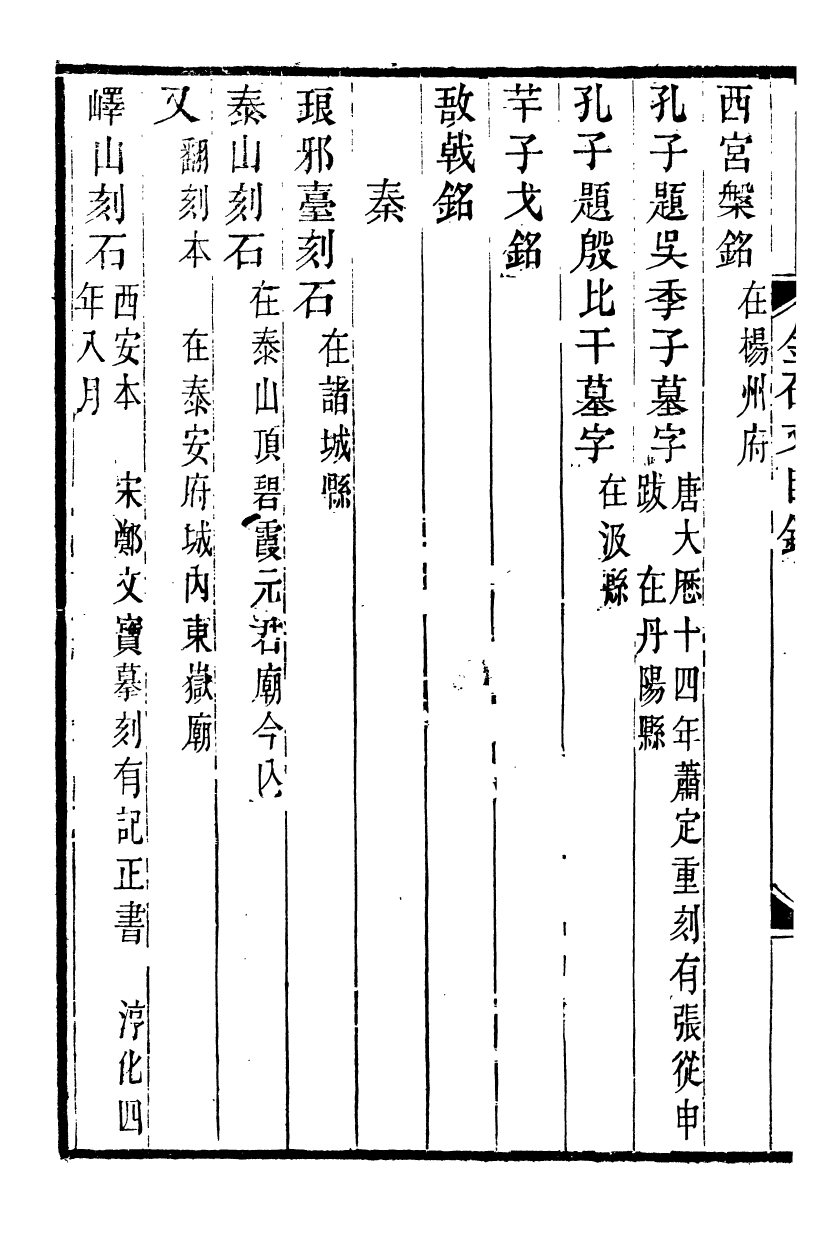 金石文目錄
西宮槃銘 在楊州府
孔子題吳季子墓字 唐大厯十四年蕭定重刻有張從申
跋 在丹陽縣
孔子題殷比干墓字 在汲縣
芉子戈銘
敔戟銘
秦
琅邪臺刻石 在諸城縣
泰山刻石 在泰山頂碧霞元君廟今入
又 翻刻本 在泰安府城內東嶽廟
嶧山刻石 西安本 宋鄭文寶摹刻有記正書 淳化四
年八月